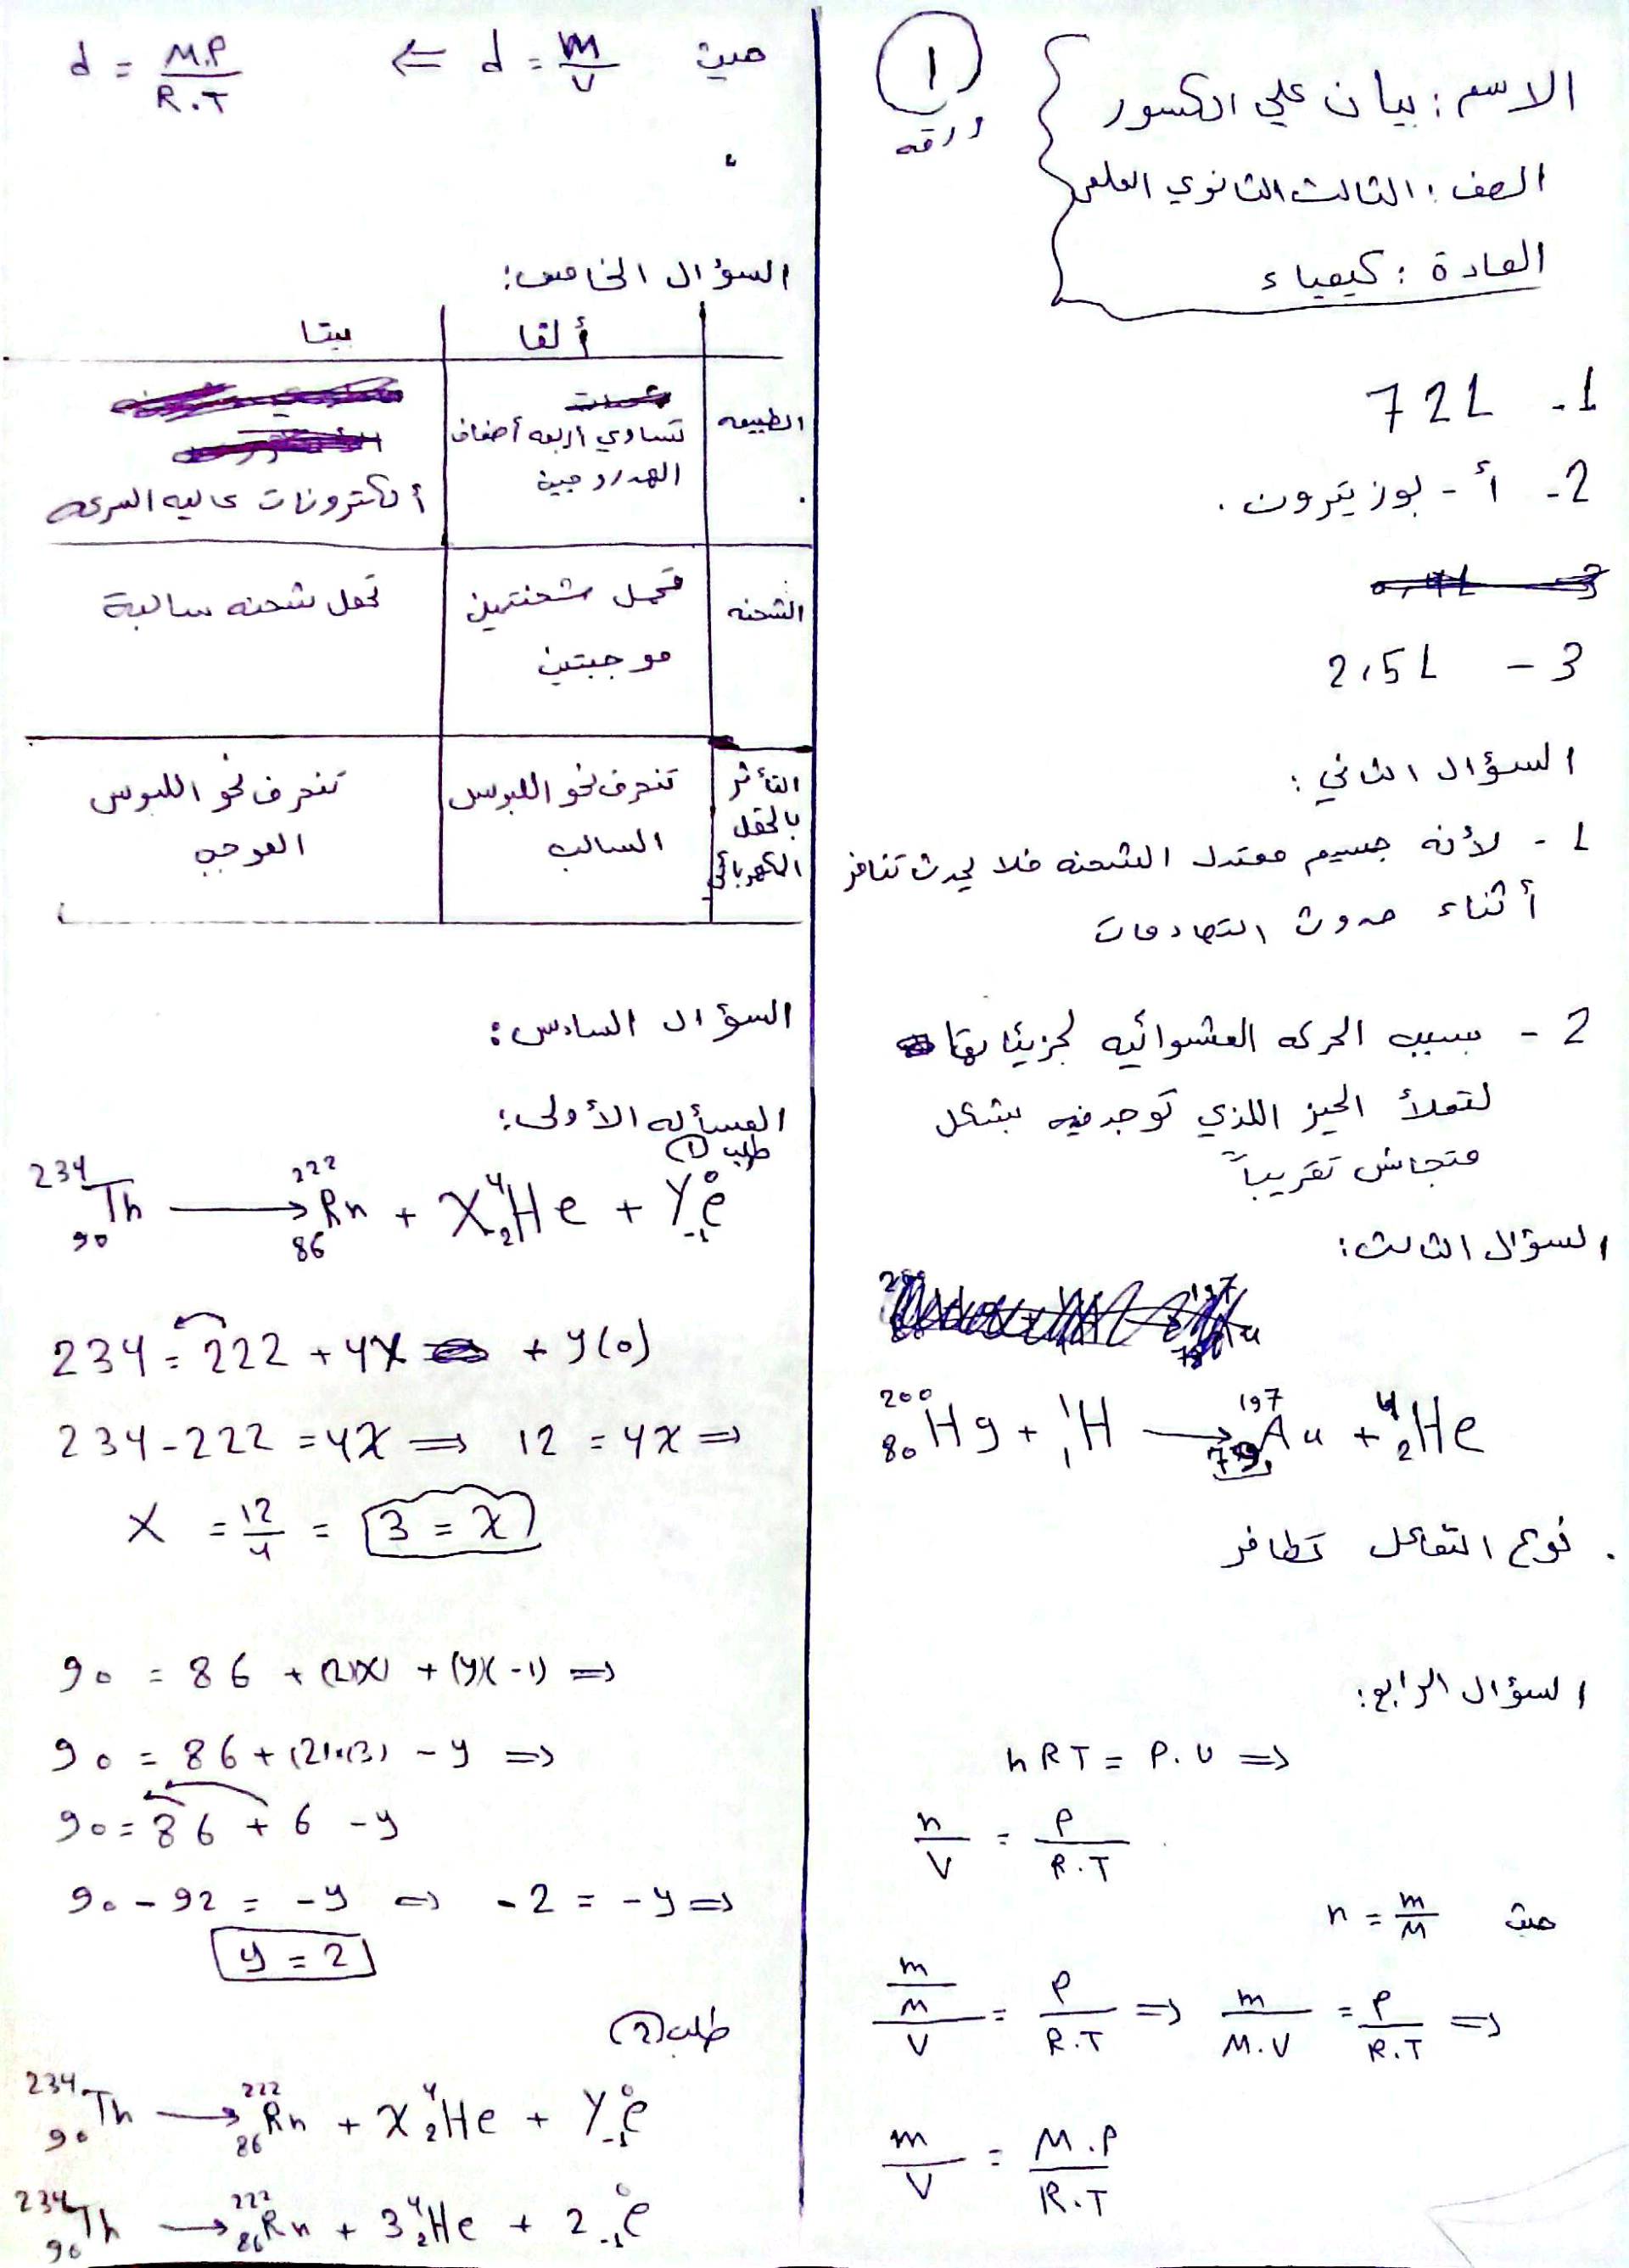 الاسم : بيان علي الكسور
الصف : الثالث الثانوي العلمي
المادة : كيمياء
1
ورقه
1- 72L
2- أ - بوزيترون .
3 - 2,5L
السؤال الثاني :
1 - لأنه جسيم معتدل الشحنه فلا يحدث تنافر
أثناء حدوث التصادمات
2 - بسبب الحركه العشوائيه لجزيئاتها
لتملأ الحيز اللذي توجد فيه بشكل
متجانس تقريباً
السؤال الثالث :
²⁰⁰₈₀Hg + ¹₁H → ¹⁹⁷₇₉Au + ⁴₂He
. نوع التفاعل تطافر
السؤال الرابع :
nRT = P.V ⇒
n/V = P/R.T
حيث n = m/M
(m/M)/V = P/R.T ⇒ m/M.V = P/R.T ⇒
m/V = M.P/R.T
حيث d = m/V ⇐ d = M.P/R.T
السؤال الخامس :
ألفا بيتا
الطبيعه تساوي أربعه أضعاف الهدروجين ألكترونات عاليه السرعه
الشحنه تحمل شحنتين موجبتين تحمل شحنه سالبة
التأثر بالحقل الكهربائي تنحرف نحو اللبوس السالب تنحرف نحو اللبوس الموجب
السؤال السادس :
المسأله الأولى :
طلب ①
²³⁴₉₀Th → ²²²₈₆Rn + X ⁴₂He + Y ⁰₋₁e
234 = 222 + 4X + y(0)
234 - 222 = 4X ⇒ 12 = 4X ⇒
X = 12/4 = 3 = X
90 = 86 + (2)(X) + (y)(-1) ⇒
90 = 86 + (2)×(3) - y ⇒
90 = 86 + 6 - y
90 - 92 = -y ⇒ -2 = -y ⇒
y = 2
طلب ②
²³⁴₉₀Th → ²²²₈₆Rn + X ⁴₂He + Y ⁰₋₁e
²³⁴₉₀Th → ²²²₈₆Rn + 3 ⁴₂He + 2 ⁰₋₁e